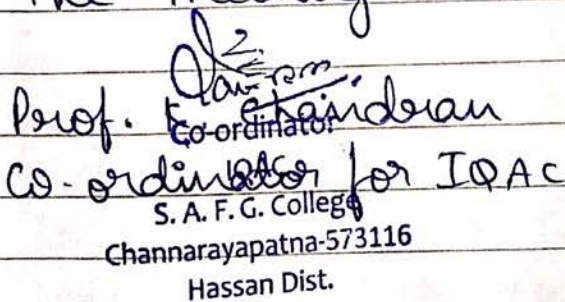 The Meeting
Prof. K. Chandran
Co-ordinator
Co-ordinator for IQAC
IQAC
S. A. F. G. College
Channarayapatna-573116
Hassan Dist.